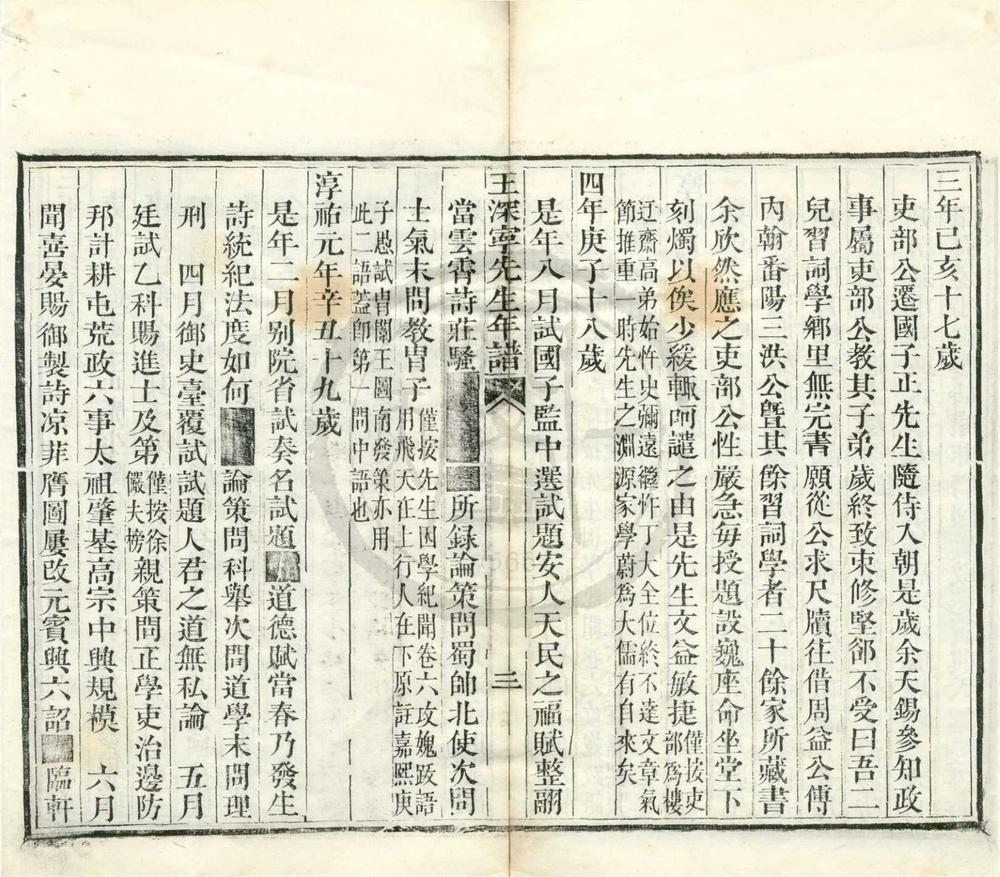 三年己亥十七歲
吏部公遷國子正先生隨侍入朝是歲余天錫參知政
事屬吏部公教其子弟歲終致束修堅卻不受曰吾二
兒習詞學鄉里無完書願從公求尺牘往借周益公傅
內翰番陽三洪公曁其餘習詞學者二十餘家所藏書
余欣然應之吏部公性嚴急每授題設巍座命坐堂下
刻燭以俟少緩輒呵譴之由是先生文益敏捷僅按吏部爲樓
迂齋高弟始忤史彌遠繼忤丁大全位終不達文章氣
節推重一時先生之淵源家學蔚爲大儒有自來矣
四年庚子十八歲
是年八月試國子監中選試題安人天民之福賦整翮
王深寧先生年譜 三
當雲霄詩莊騷所録論策問蜀帥北使次問
士氣末問教胄子僅按先生困學紀聞卷六攻媿跋語
用飛天在上行人在下原註嘉熙庚
子愚試胄闈王圖南發策亦用
此二語蓋卽第一問中語也
淳祐元年辛丑十九歲
是年二月別院省試奏名試題道德賦當春乃發生
詩統紀法度如何論策問科舉次問道學末問理
刑 四月御史臺覆試試題人君之道無私論 五月
廷試乙科賜進士及第僅按徐儼夫榜親策問正學吏治邊防
邦計耕屯荒政六事太祖肇基高宗中興規模 六月
聞喜晏賜御製詩凉菲膺圖屢改元賓興六詔臨軒